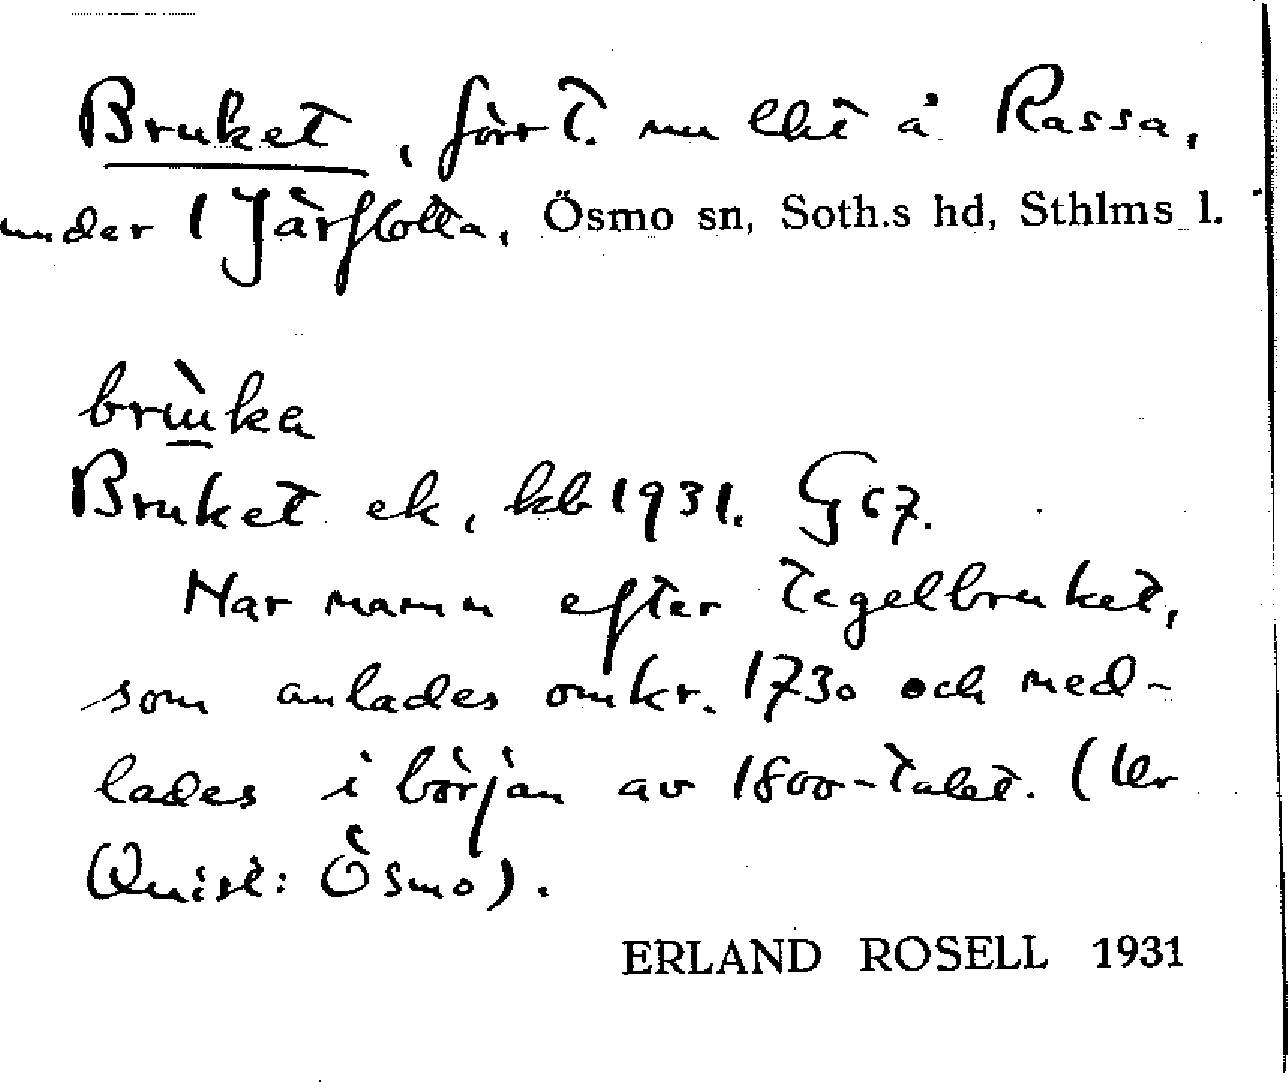 Bruket, förr t. nu lht å Rassa,
under 1 Järflotta, Ösmo sn, Soth.s hd, Sthlms l.
brùka
Bruket ek, kb 1931. G 67.
Har namn efter tegelbruket,
som anlades omkr. 1730 och ned-
lades i början av 1800-talet. (Ur
Quist: Ösmo).
ERLAND ROSELL 1931